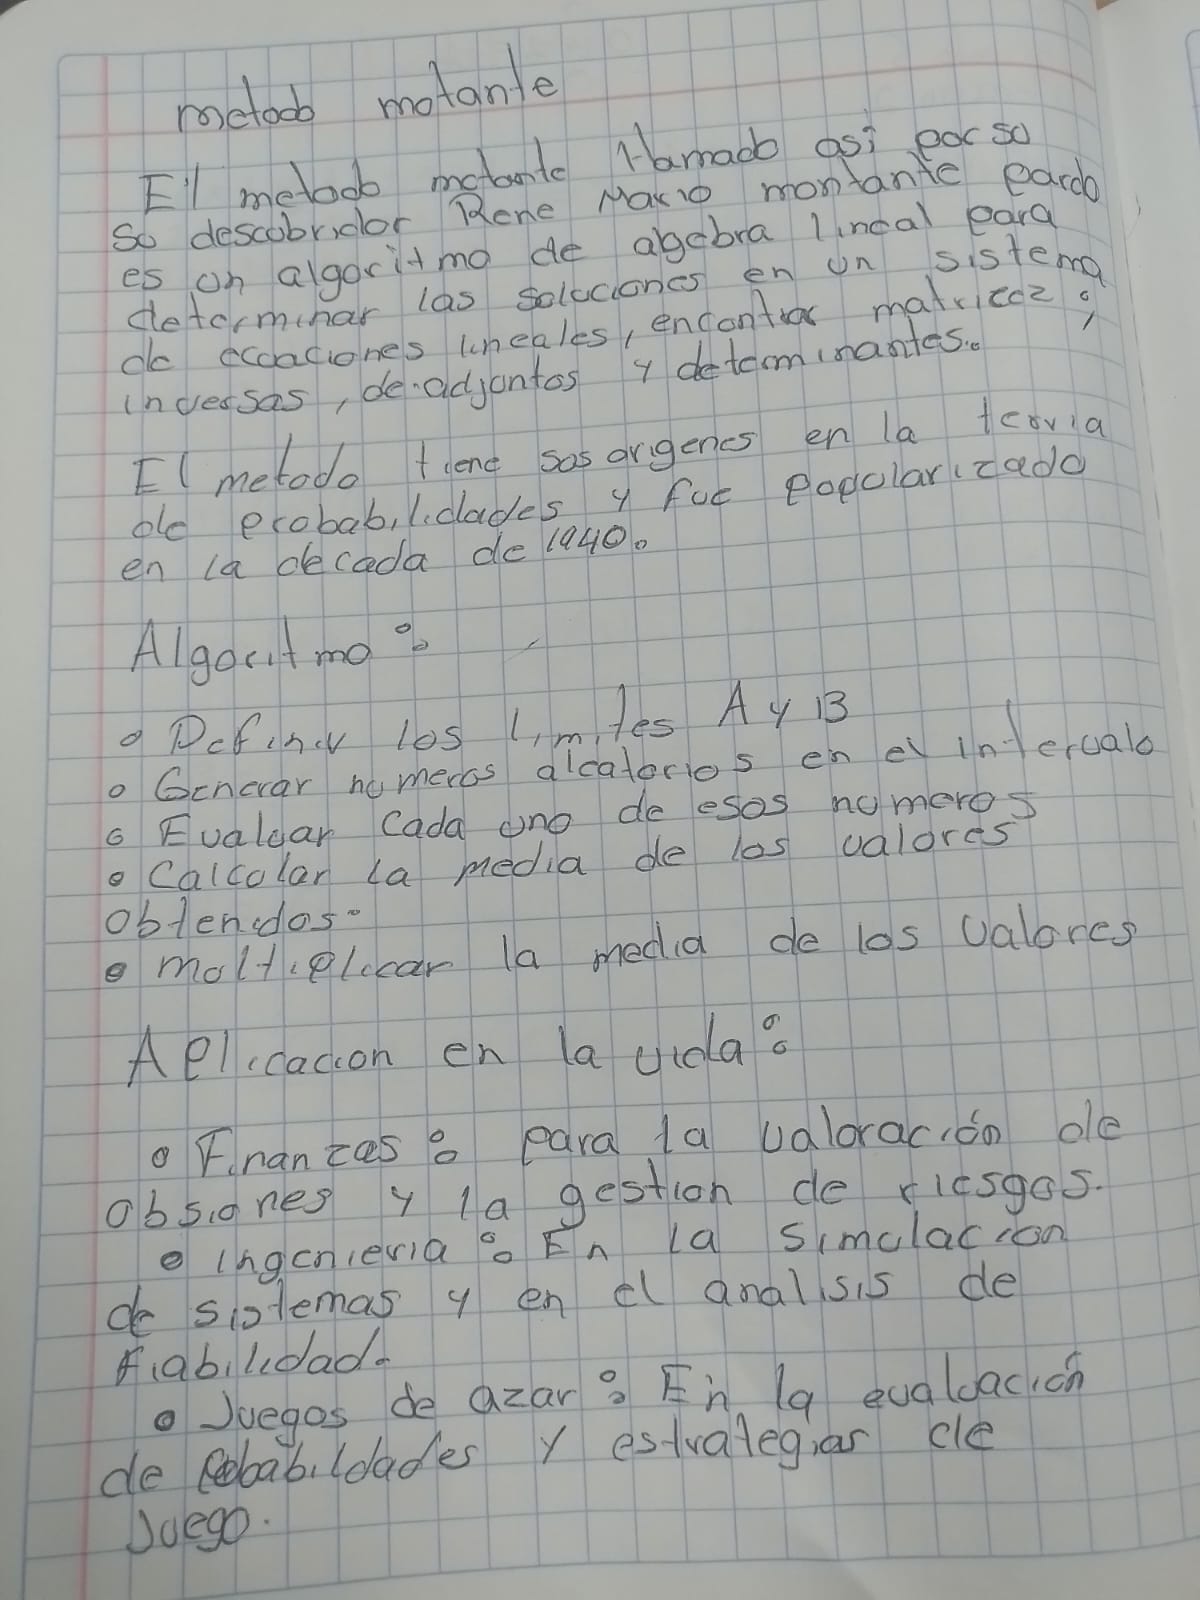 metodo motante
El metodo motante llamado asi por so
so descobridor Rene Mario montante pardo
es on algoritmo de algebra lineal para
determinar las soluciones en un sistema
de ecoaciones lineales, encontrar matricez ;
inversas, de adjontos y determinantes.
El metodo tiene sos origenes en la teoria
de probabilidades y fue popularizado
en la decada de 1940.
Algoritmo :
• Definir los limites A y B
• Generar numeros aleatorios en el intervalo
• Evaluar cada uno de esos numeros
• Calcolar la media de los valores
obtenidos.
• moltiplicar la media de los valores
Aplicacion en la vida :
• Finanzas : para la valoración de
obsiones y la gestion de riesgos.
• ingenieria : En la simulacion
de sistemas y en el analisis de
fiabilidad.
• Juegos de azar : En la evaluación
de pobabildades y estrategias de
Juego.